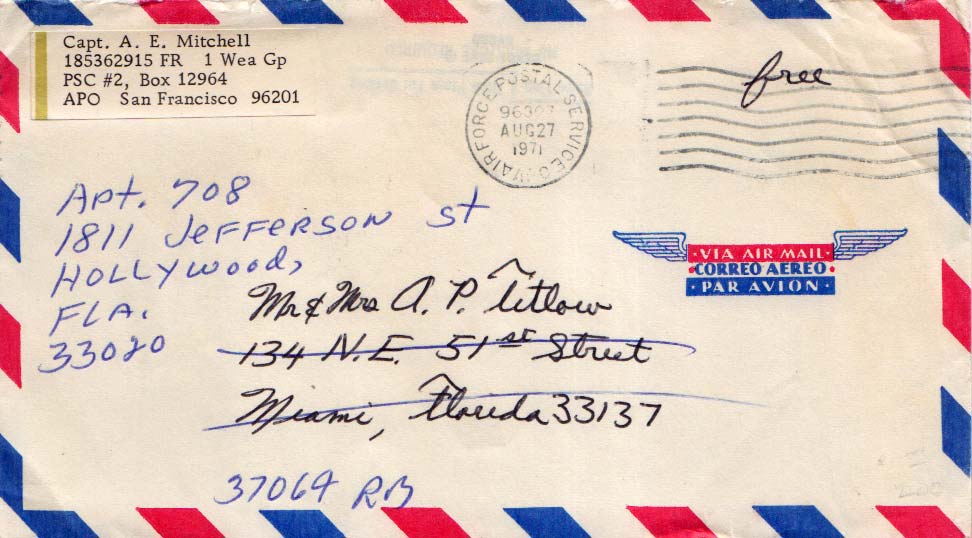 Capt. A. E. Mitchell
185362915 FR 1 Wea Gp
PSC #2, Box 12964
APO San Francisco 96201
AIR FORCE POSTAL SERVICE
AUG 27
1971
free
Apt. 708
1811 JEFFERSON st
HOLLYWOOD,
FLA.
33020
VIA AIR MAIL
CORREO AEREO
PAR AVION
Mr & Mrs A. P. Titlow
134 N.E. 51st Street
Miami, Florida 33137
37064 RB